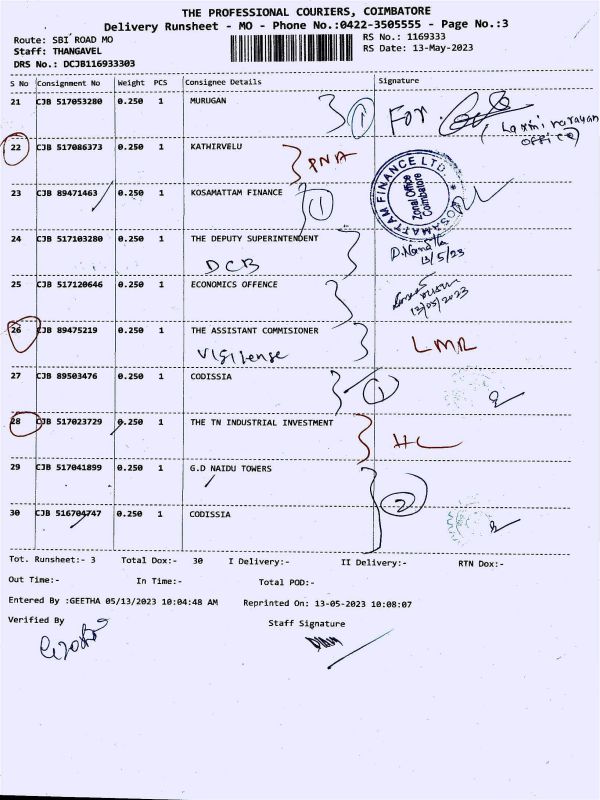 THE PROFESSIONAL COURIERS, COIMBATORE
Delivery Runsheet - MO - Phone No.:0422-3505555 - Page No.:3
Route: SBI ROAD MO
RS No.: 1169333
Staff: THANGAVEL
RS Date: 13-May-2023
DRS No.: DCJB116933303
S No Consignment No Weight PCS Consignee Details Signature
21 CJB 517053280 0.250 1 MURUGAN
1 For
(Laxmi narayan
OFFICE)
22 CJB 517086373 0.250 1 KATHIRVELU
PNA
23 CJB 89471463 0.250 1 KOSAMATTAM FINANCE
1
KOSAMATTAM FINANCE LTD.
Zonal Office
Coimbatore
24 CJB 517103280 0.250 1 THE DEPUTY SUPERINTENDENT
DCB
13/5/23
25 CJB 517120646 0.250 1 ECONOMICS OFFENCE
13/05/2023
26 CJB 89475219 0.250 1 THE ASSISTANT COMMISIONER
Vigilense LMR
27 CJB 89503476 0.250 1 CODISSIA
1
28 CJB 517023729 0.250 1 THE TN INDUSTRIAL INVESTMENT
HC
29 CJB 517041899 0.250 1 G.D NAIDU TOWERS
2
30 CJB 516704747 0.250 1 CODISSIA
Tot. Runsheet:- 3 Total Dox:- 30 I Delivery:- II Delivery:- RTN Dox:-
Out Time:- In Time:- Total POD:-
Entered By :GEETHA 05/13/2023 10:04:48 AM Reprinted On: 13-05-2023 10:08:07
Verified By Staff Signature